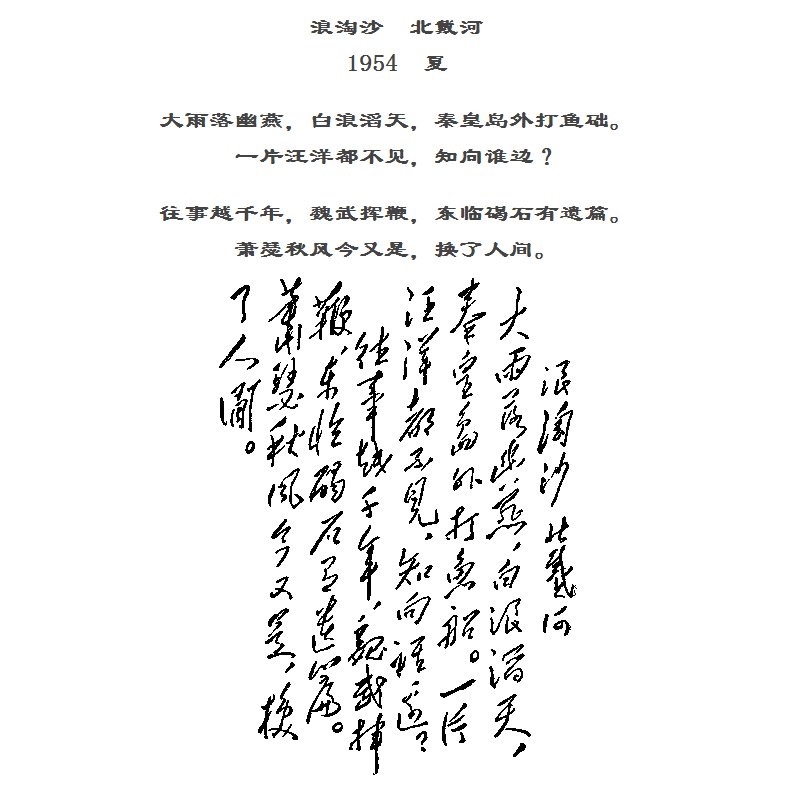 浪淘沙　北戴河
1954　夏
大雨落幽燕，白浪滔天，秦皇岛外打鱼础。
一片汪洋都不见，知向谁边？
往事越千年，魏武挥鞭，东临碣石有遗篇。
萧瑟秋风今又是，换了人间。
浪淘沙 北戴河
大雨落幽燕，白浪滔天，
秦皇島外打魚船。一片
汪洋都不見，知向誰邊？
往事越千年，魏武揮
鞭，東臨碣石有遺篇。
蕭瑟秋風今又是，換
了人間。